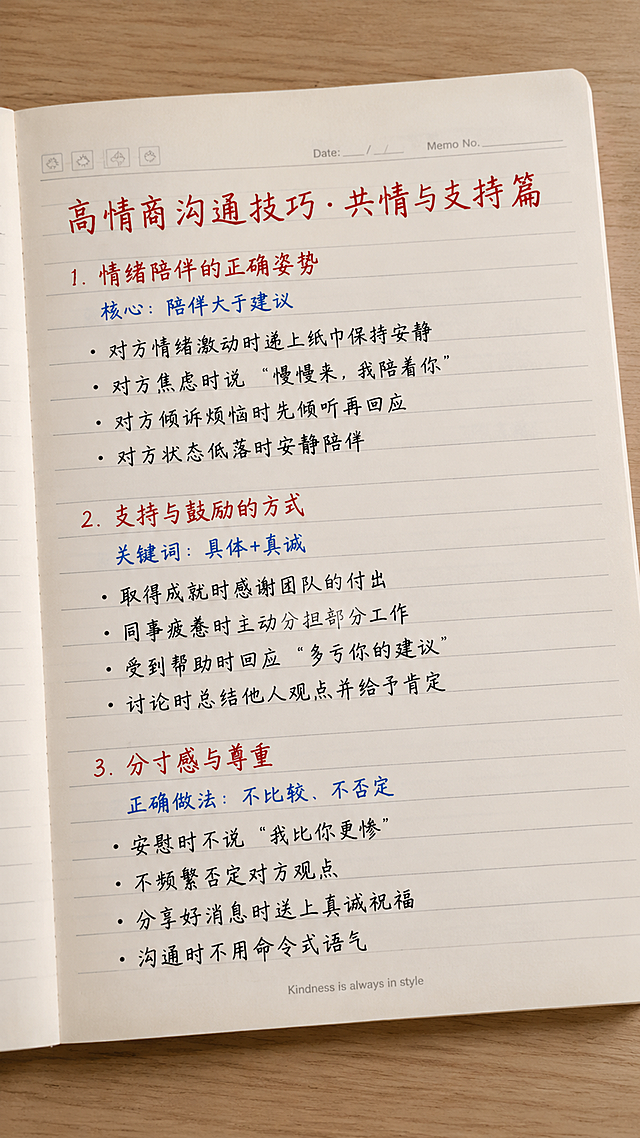 Date: ___/___/___ Memo No.
高情商沟通技巧·共情与支持篇
1. 情绪陪伴的正确姿势
核心：陪伴大于建议
• 对方情绪激动时递上纸巾保持安静
• 对方焦虑时说“慢慢来，我陪着你”
• 对方倾诉烦恼时先倾听再回应
• 对方状态低落时安静陪伴
2. 支持与鼓励的方式
关键词：具体+真诚
• 取得成就时感谢团队的付出
• 同事疲惫时主动分担部分工作
• 受到帮助时回应“多亏你的建议”
• 讨论时总结他人观点并给予肯定
3. 分寸感与尊重
正确做法：不比较、不否定
• 安慰时不说“我比你更惨”
• 不频繁否定对方观点
• 分享好消息时送上真诚祝福
• 沟通时不用命令式语气
Kindness is always in style